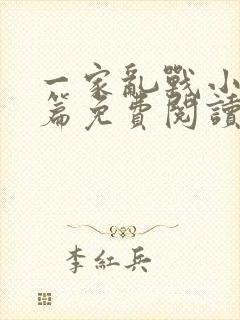 一家亂戰小
篇免費閱讀
李紅兵